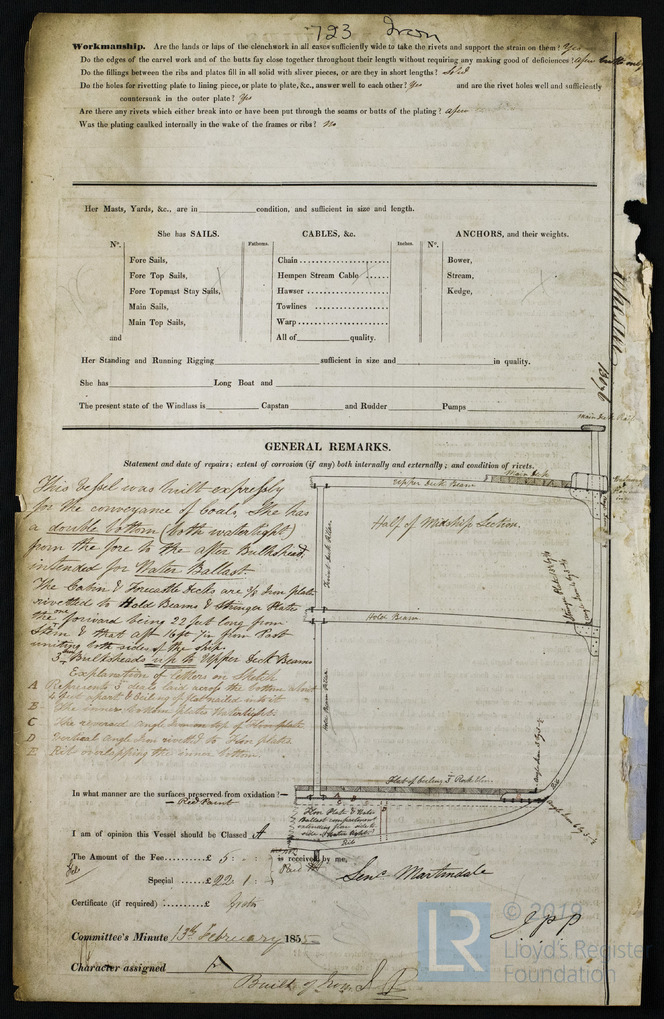 723 Iron
Workmanship. Are the lands or laps of the clenchwork in all cases sufficiently wide to take the rivets and support the strain on them? Yes
Do the edges of the carvel work and of the butts fay close together throughout their length without requiring any making good of deficiences? a few butts only
Do the fillings between the ribs and plates fill in all solid with sliver pieces, or are they in short lengths? Solid
Do the holes for rivetting plate to lining piece, or plate to plate, &c., answer well to each other? Yes and are the rivet holes well and sufficiently
countersunk in the outer plate? Yes
Are there any rivets which either break into or have been put through the seams or butts of the plating? a few
Was the plating caulked internally in the wake of the frames or ribs? No
Her Masts, Yards, &c., are in condition, and sufficient in size and length.
She has SAILS. CABLES, &c. ANCHORS, and their weights.
Nº. Fathoms. Inches. Nº.
Fore Sails, Chain Bower,
Fore Top Sails, Hempen Stream Cable Stream,
Fore Topmast Stay Sails, Hawser Kedge,
Main Sails, Towlines
Main Top Sails, Warp
and All of quality.
Her Standing and Running Rigging sufficient in size and in quality.
She has Long Boat and
The present state of the Windlass is Capstan and Rudder Pumps
GENERAL REMARKS.
Statement and date of repairs; extent of corrosion (if any) both internally and externally; and condition of rivets.
This Vessel was built expressly
for the conveyance of Coals, She has
a double bottom (both watertight)
from the fore to the after Bulkhead,
intended for Water Ballast
The Cabin & Forecastle Decks are 3/16 Iron plate
rivetted to Hold Beams & Stringer Plates
the forward one being 22 feet long from
Stem & that aft 16 ft from Post
uniting both sides of the ship.
3 Bulkheads up to Upper Deck Beams
Explanation of letters on Sketch
A Represents 3 deals laid across the bottom about
apart & ceiling of flat nailed into it
B The inner bottom plates Watertight.
C The reversed Angle Iron on top of floor plate
D Vertical Angle Iron rivetted to floor plates
E Rib overlapping the inner bottom
Main Deck Rail
Upper Deck Beam
Main Deck
Half of Midship Section.
Hold Beam
Hold Beam Pillar
Flat of ceiling 3 Rock Elm
Floor Plate & Water
Ballast compartment
extending from side to
side & Water tight
Rib
In what manner are the surfaces preserved from oxidation?
Red Paint
I am of opinion this Vessel should be Classed A
The Amount of the Fee £ 5 : - : is received by me,
Special £22 : 1 :
Senr. Martindale
Certificate (if required) £
Committee's Minute 13th February 1855
Character assigned A
Built of Iron
© 2019
LR
Lloyd's Register
Foundation